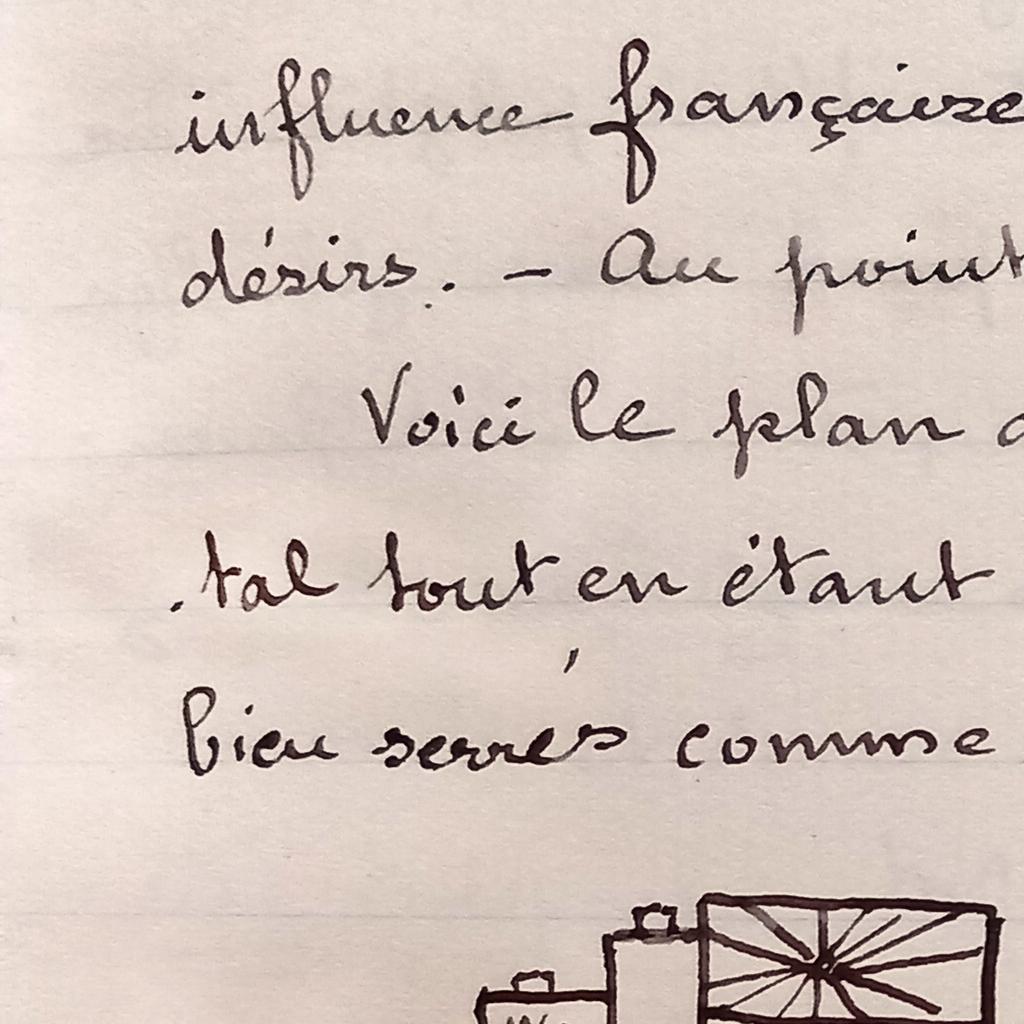 influence française
désirs. - Au point
Voici le plan
.tal tout en étant
bien serrés comme